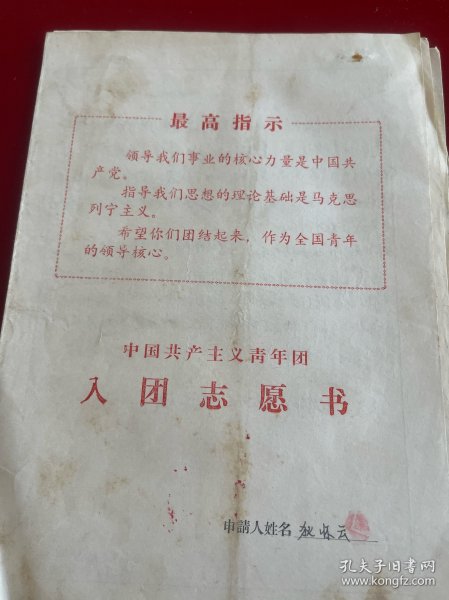 最高指示
领导我们事业的核心力量是中国共
产党。
指导我们思想的理论基础是马克思
列宁主义。
希望你们团结起来，作为全国青年
的领导核心。
中国共产主义青年团
入团志愿书
申請人姓名
孔夫子旧书网
www.kongfz.com